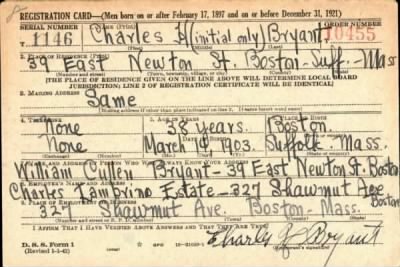 REGISTRATION CARD—(Men born on or after February 17, 1897 and on or before December 31, 1921)
SERIAL NUMBER 1. NAME (Print) ORDER NUMBER
T 1146 Charles A (initial only) Bryant 10455
(First) (Middle) (Last)
2. PLACE OF RESIDENCE (Print)
39 East Newton St. Boston-Suff.-Mass
(Number and street) (Town, township, village, or city) (County) (State)
[THE PLACE OF RESIDENCE GIVEN ON THE LINE ABOVE WILL DETERMINE LOCAL BOARD
JURISDICTION; LINE 2 OF REGISTRATION CERTIFICATE WILL BE IDENTICAL]
3. MAILING ADDRESS
Same
[Mailing address if other than place indicated on line 2. If same insert word same]
4. TELEPHONE 5. AGE IN YEARS 6. PLACE OF BIRTH
None 38 years. Boston.
None March 19, 1903. Suffolk. Mass.
William Cullen Bryant-39 East Newton St. Boston
Charles Lambrino Estate-327 Shawmut Ave. Boston
327 Shawmut Ave. Boston-Mass.
I AFFIRM THAT I HAVE VERIFIED ABOVE ANSWERS AND THAT THEY ARE TRUE.
D. S. S. Form 1
(Revised 1-1-42) Bryant